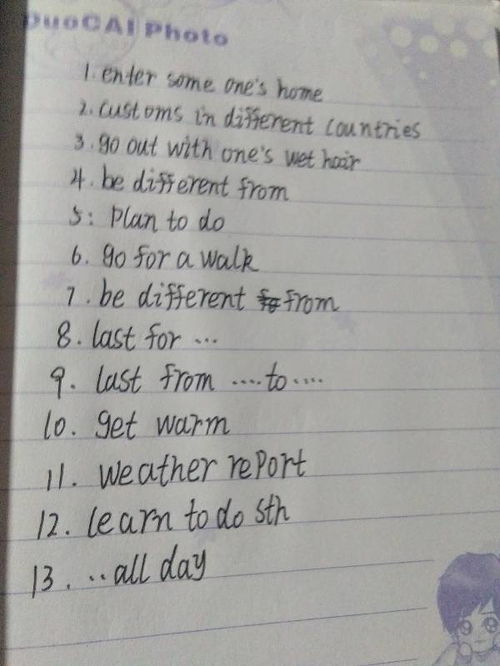 DuoCAI Photo
1. enter some one's home
2. customs in different countries
3. go out with one's wet hair
4. be different from
5: Plan to do
6. go for a walk
7. be different from
8. last for ...
9. last from ....to....
10. get warm
11. weather rePort
12. learn to do sth
13. ..all day